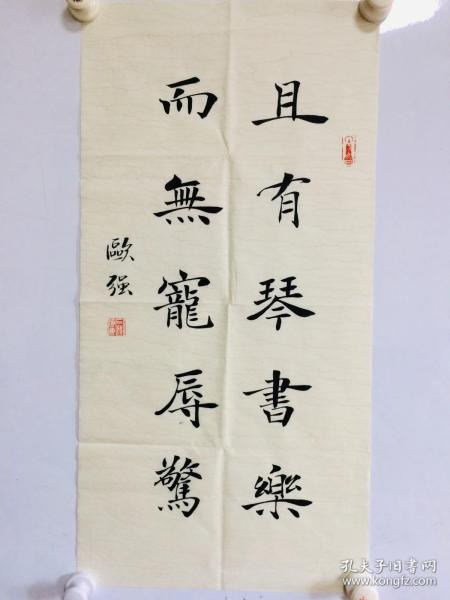 且有琴書樂
而無寵辱驚
歐强
孔夫子旧书网
www.kongfz.com